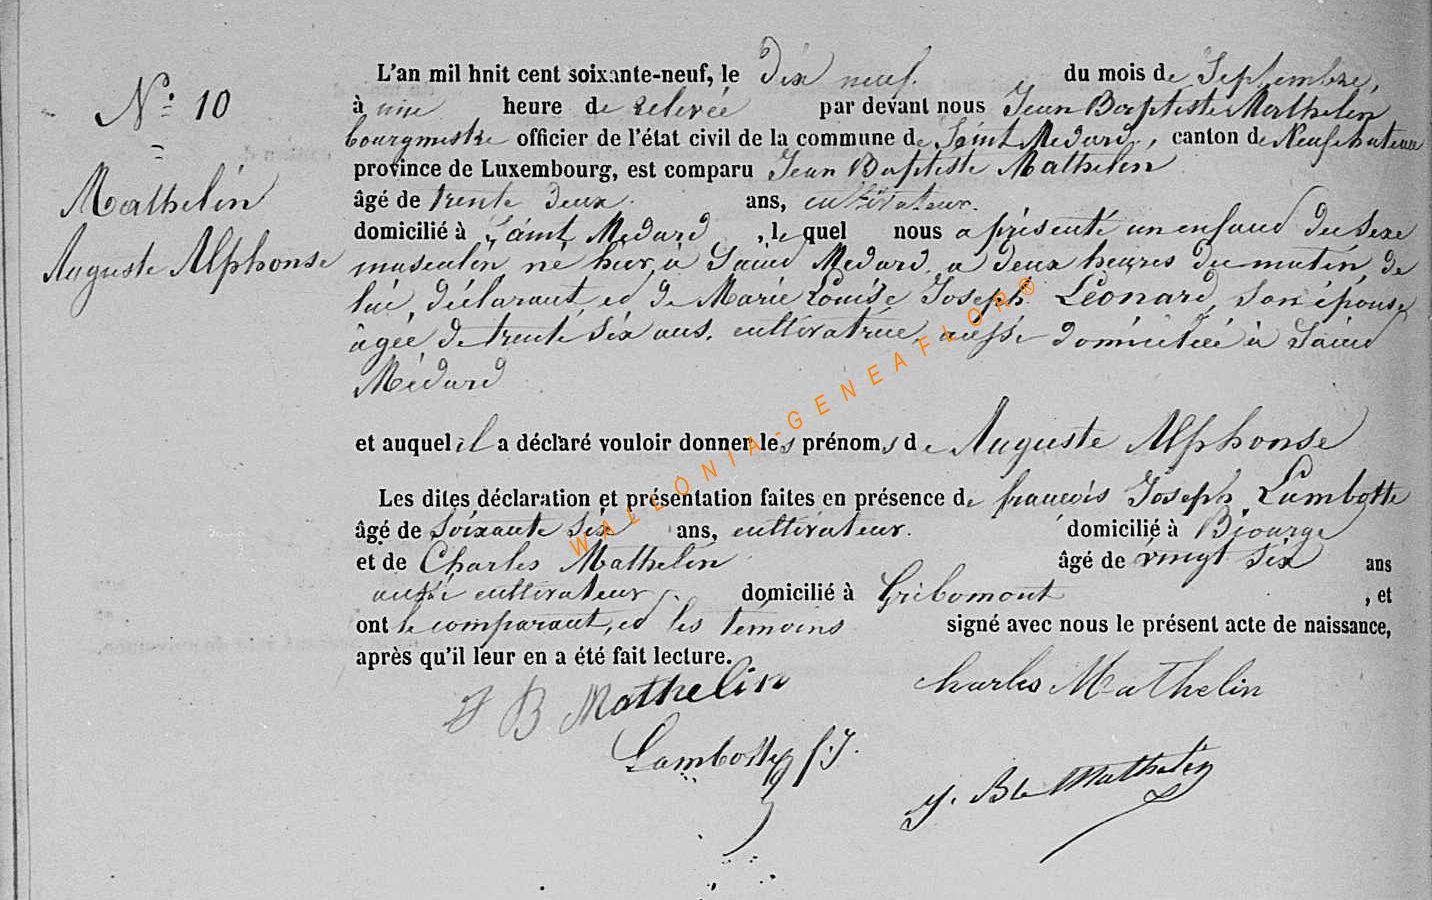 N° 10
Mathelin
Auguste Alphonse
L'an mil hnit cent soixante-neuf, le Dix neuf du mois de Septembre,
à une heure de relevée par devant nous Jean Baptiste Mathelin
bourgmestre officier de l'état civil de la commune de Saint Medard, canton de Neufchateau
province de Luxembourg, est comparu Jean Baptiste Mathelin
âgé de trente deux ans, cultivateur.
domicilié à Saint Medard, lequel nous a présenté un enfant du sexe
masculin né hier, à Saint Medard, a deux heures du matin, de
lui, déclarant et de Marie Louise Joseph Léonard, son épouse
âgée de trente six ans, cultivatrice, aussi domiciliée à Saint
Médard
et auquel il a déclaré vouloir donner les prénoms de Auguste Alphonse
Les dites déclaration et présentation faites en présence de françois Joseph Lambotte
âgé de Soixante Six ans, cultivateur. domicilié à Biourge
et de Charles Mathelin âgé de vingt six ans
aussi cultivateur domicilié à Gribomont, et
ont le comparant, et les témoins signé avec nous le présent acte de naissance,
après qu'il leur en a été fait lecture.
J B Mathelin
Charles Mathelin
Lambotte f. J.
J. Bte Mathelin
WALLONIA-GENEAFLOR®